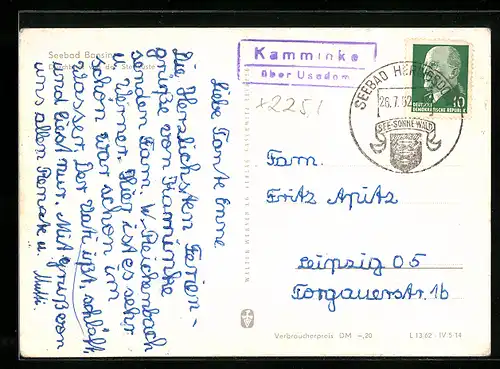 Seebad Bansin
Kamminke
über Usedom
+2251
SEEBAD HERINGSDORF
26.7.62
SEE-SONNE WALD
DEUTSCHE
DEMOKRATISCHE REPUBLIK
10
Liebe Tante Enne
Die Herzlichsten Ferien-
grüße von Kamminke
senden Fam. W. Reichenbach
u. Werner. Hier ist es sehr
schön war schon im
Wasser. Der Vati ißt, schläft,
und liest nur. Mit grüße von
uns allen Renate u. Mutti.
Fam.
Fritz Apitz
Leipzig O5
Torgauerstr. 1b
Verbraucherpreis DM –,20
L 13 62 · IV 5 14